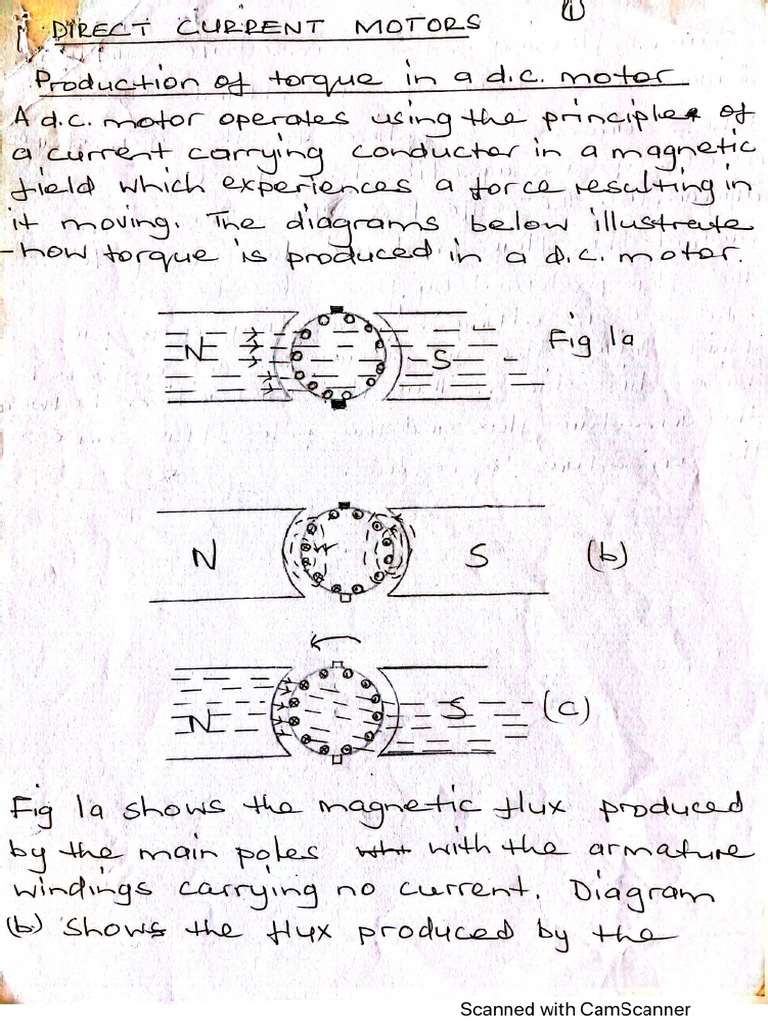 (1)
DIRECT CURRENT MOTORS
Production of torque in a d.c. motor
A d.c. motor operates using the principle of
a current carrying conductor in a magnetic
field which experiences a force resulting in
it moving. The diagrams below illustrate
how torque is produced in a d.c. motor.
N S Fig 1a
N S (b)
N S (c)
Fig 1a shows the magnetic flux produced
by the main poles with the armature
windings carrying no current. Diagram
(b) shows the flux produced by the
Scanned with CamScanner